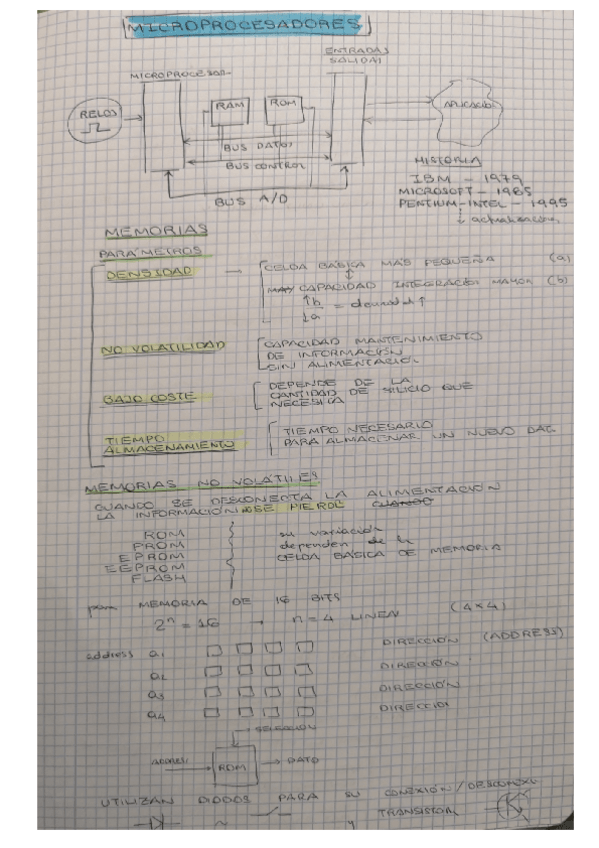 MICROPROCESADORES
ENTRADAS
SALIDAS
MICROPROCESADOR
RELOJ
RAM
ROM
APLICACIÓN
BUS DATOS
BUS CONTROL
BUS A/D
HISTORIA
IBM - 1979
MICROSOFT - 1985
PENTIUM-INTEL - 1995
↓ actualización
MEMORIAS
PARÁMETROS
DENSIDAD → CELDA BÁSICA MÁS PEQUEÑA (a)
MAY CAPACIDAD INTEGRACIÓN MAYOR (b)
↑b
↓a = densidad ↑
NO VOLATILIDAD
CAPACIDAD MANTENIMIENTO
DE INFORMACIÓN
SIN ALIMENTACIÓN
BAJO COSTE
DEPENDE DE LA
CANTIDAD DE SILICIO QUE
NECESITA
TIEMPO
ALMACENAMIENTO
TIEMPO NECESARIO
PARA ALMACENAR UN NUEVO DATO
MEMORIAS NO VOLÁTILES
CUANDO SE DESCONECTA LA ALIMENTACIÓN
LA INFORMACIÓN NO SE PIERDE CUANDO
ROM
PROM
EPROM
EEPROM
FLASH
su variación
dependen de la
CELDA BÁSICA DE MEMORIA
para MEMORIA DE 16 BITS
2ⁿ = 16 → n = 4 LINEAS (4x4)
address a1 DIRECCIÓN (ADDRESS)
a2 DIRECCIÓN
a3 DIRECCIÓN
a4 DIRECCIÓN
SELECCIÓN
ADDRESS ROM → DATO
UTILIZAN DIODOS PARA SU CONEXIÓN/DESCONEXIÓN
~ y TRANSISTOR